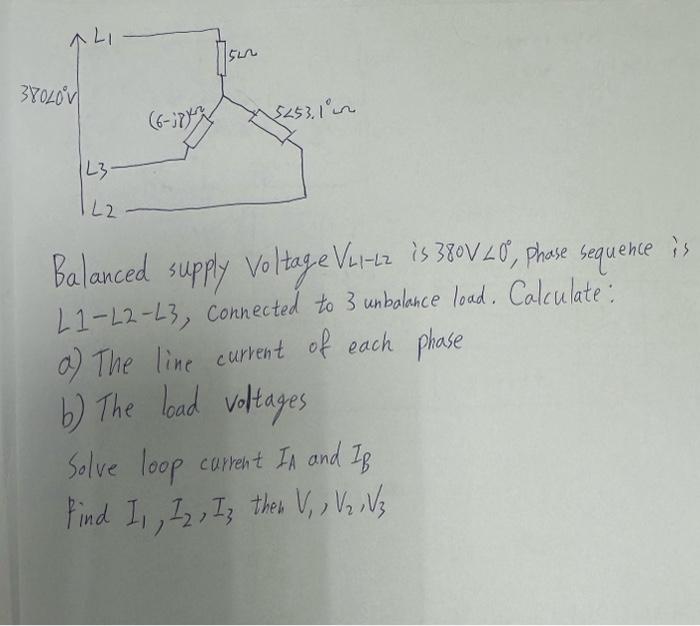 L1
5Ω
380∠0°V
(6-j8)Ω
5∠53.1°Ω
L3
L2
Balanced supply Voltage VL1-L2 is 380V∠0°, phase sequence is
L1-L2-L3, connected to 3 unbalance load. Calculate:
a) The line current of each phase
b) The load voltages
Solve loop current IA and IB
Find I1, I2, I3 then V1, V2, V3